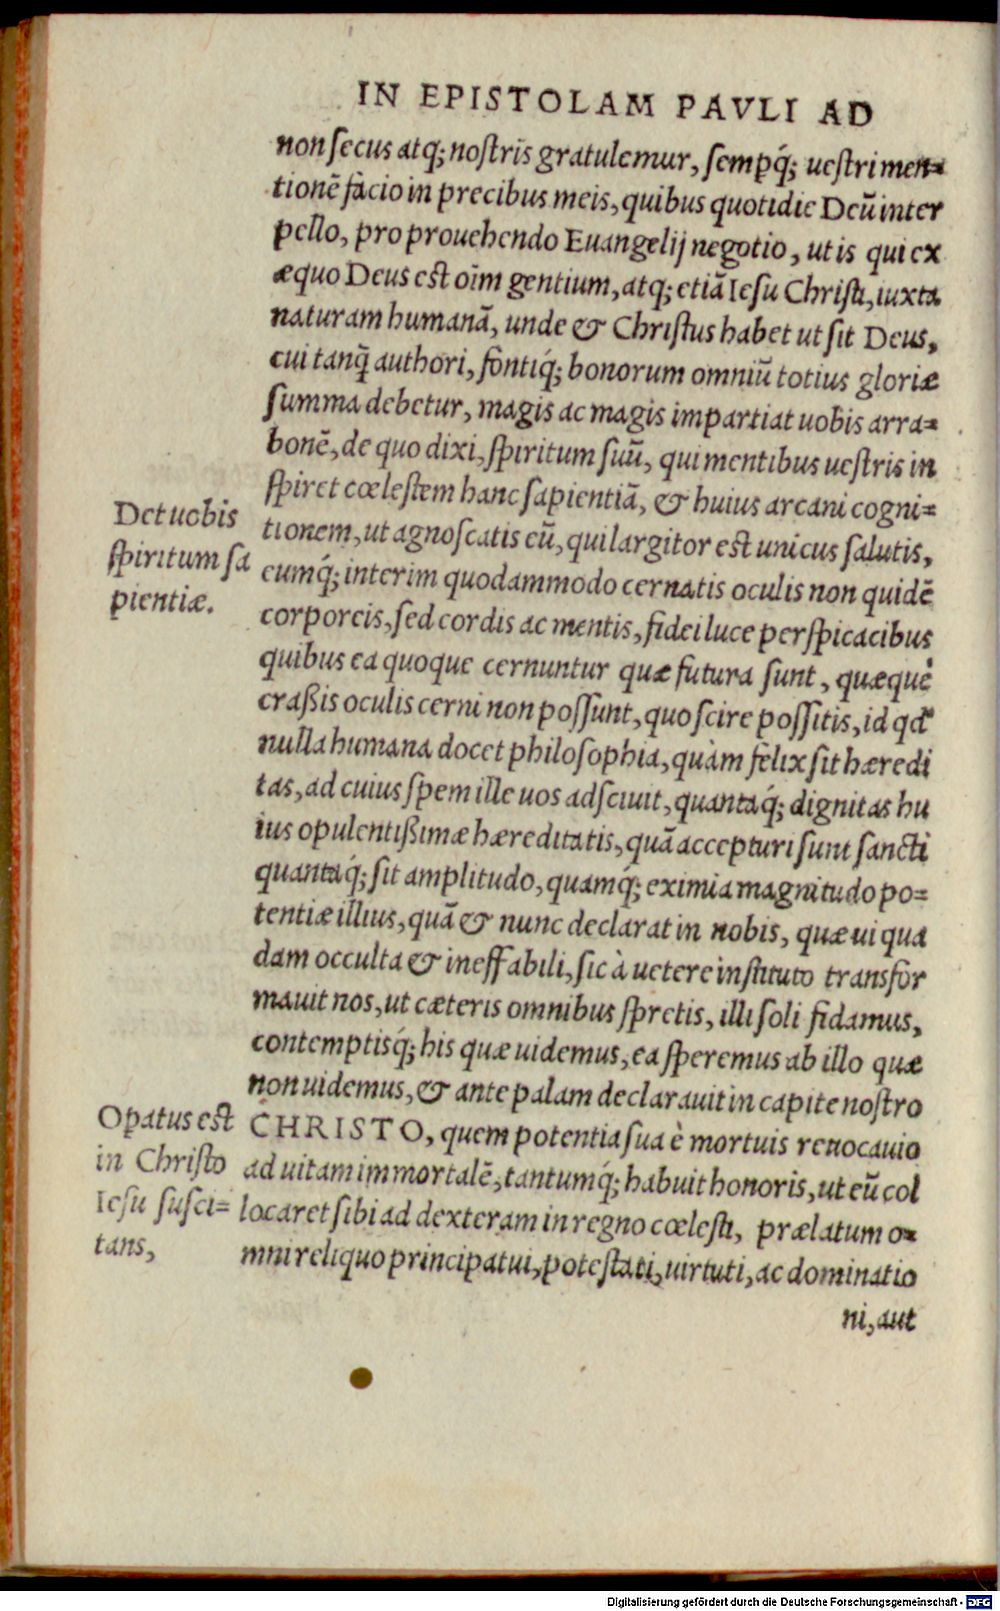 IN EPISTOLAM PAVLI AD
non secus atq; nostris gratulemur, sempq́; uestri men=
tionē facio in precibus meis, quibus quotidie Deū inter
pello, pro prouehendo Euangelij negotio, ut is qui ex
æquo Deus est oīm gentium, atq; etiā Iesu Christi, iuxta
naturam humanā, unde & Christus habet ut sit Deus,
cui tanq̄ authori, fontiq́; bonorum omniū totius gloriæ
summa debetur, magis ac magis impartiat uobis arra=
bonē, de quo dixi, spiritum suū, qui mentibus uestris in
spiret cœlestem hanc sapientiā, & huius arcani cogni=
Det uobis
spiritum sa
pientiæ.
tionem, ut agnoscatis eū, qui largitor est unicus salutis,
eumq́; interim quodammodo cernatis oculis non quidē
corporeis, sed cordis ac mentis, fidei luce perspicacibus
quibus ea quoque cernuntur quæ futura sunt, quæquè
craßis oculis cerni non possunt, quo scire possitis, id qđ
nulla humana docet philosophia, quàm felix sit hæredi
tas, ad cuius spem ille uos adsciuit, quantaq́; dignitas hu
ius opulentißimæ hæreditatis, quā accepturi sunt sancti
quantaq́; sit amplitudo, quamq́; eximia magnitudo po=
tentiæ illius, quā & nunc declarat in nobis, quæ ui qua
dam occulta & ineffabili, sic à uetere instituto transfor
mauit nos, ut cæteris omnibus spretis, illi soli fidamus,
contemptisq́; his quæ uidemus, ea speremus ab illo quæ
non uidemus, & ante palam declarauit in capite nostro
Opatus est
in Christo
Iesu susci=
tans,
CHRISTO, quem potentia sua è mortuis reuocauio
ad uitam immortalē, tantumq́; habuit honoris, ut eū col
locaret sibi ad dexteram in regno cœlesti, prælatum o=
mni reliquo principatui, potestati, uirtuti, ac dominatio
ni, aut
Digitalisierung gefördert durch die Deutsche Forschungsgemeinschaft - DFG